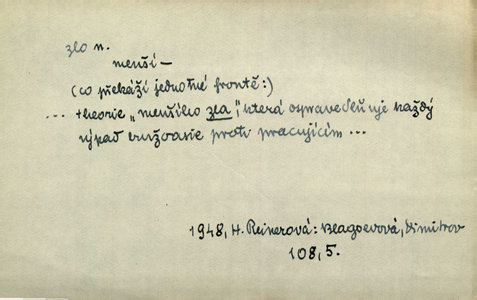 zlo n.
menší —
(co překáží jednotné frontě:)
... theorie „menšího zla“, která ospravedlňuje každý
výpad buržoasie proti pracujícím ...
1948, H. Reinerová: Blagoevová, Dimitrov
108, 5.